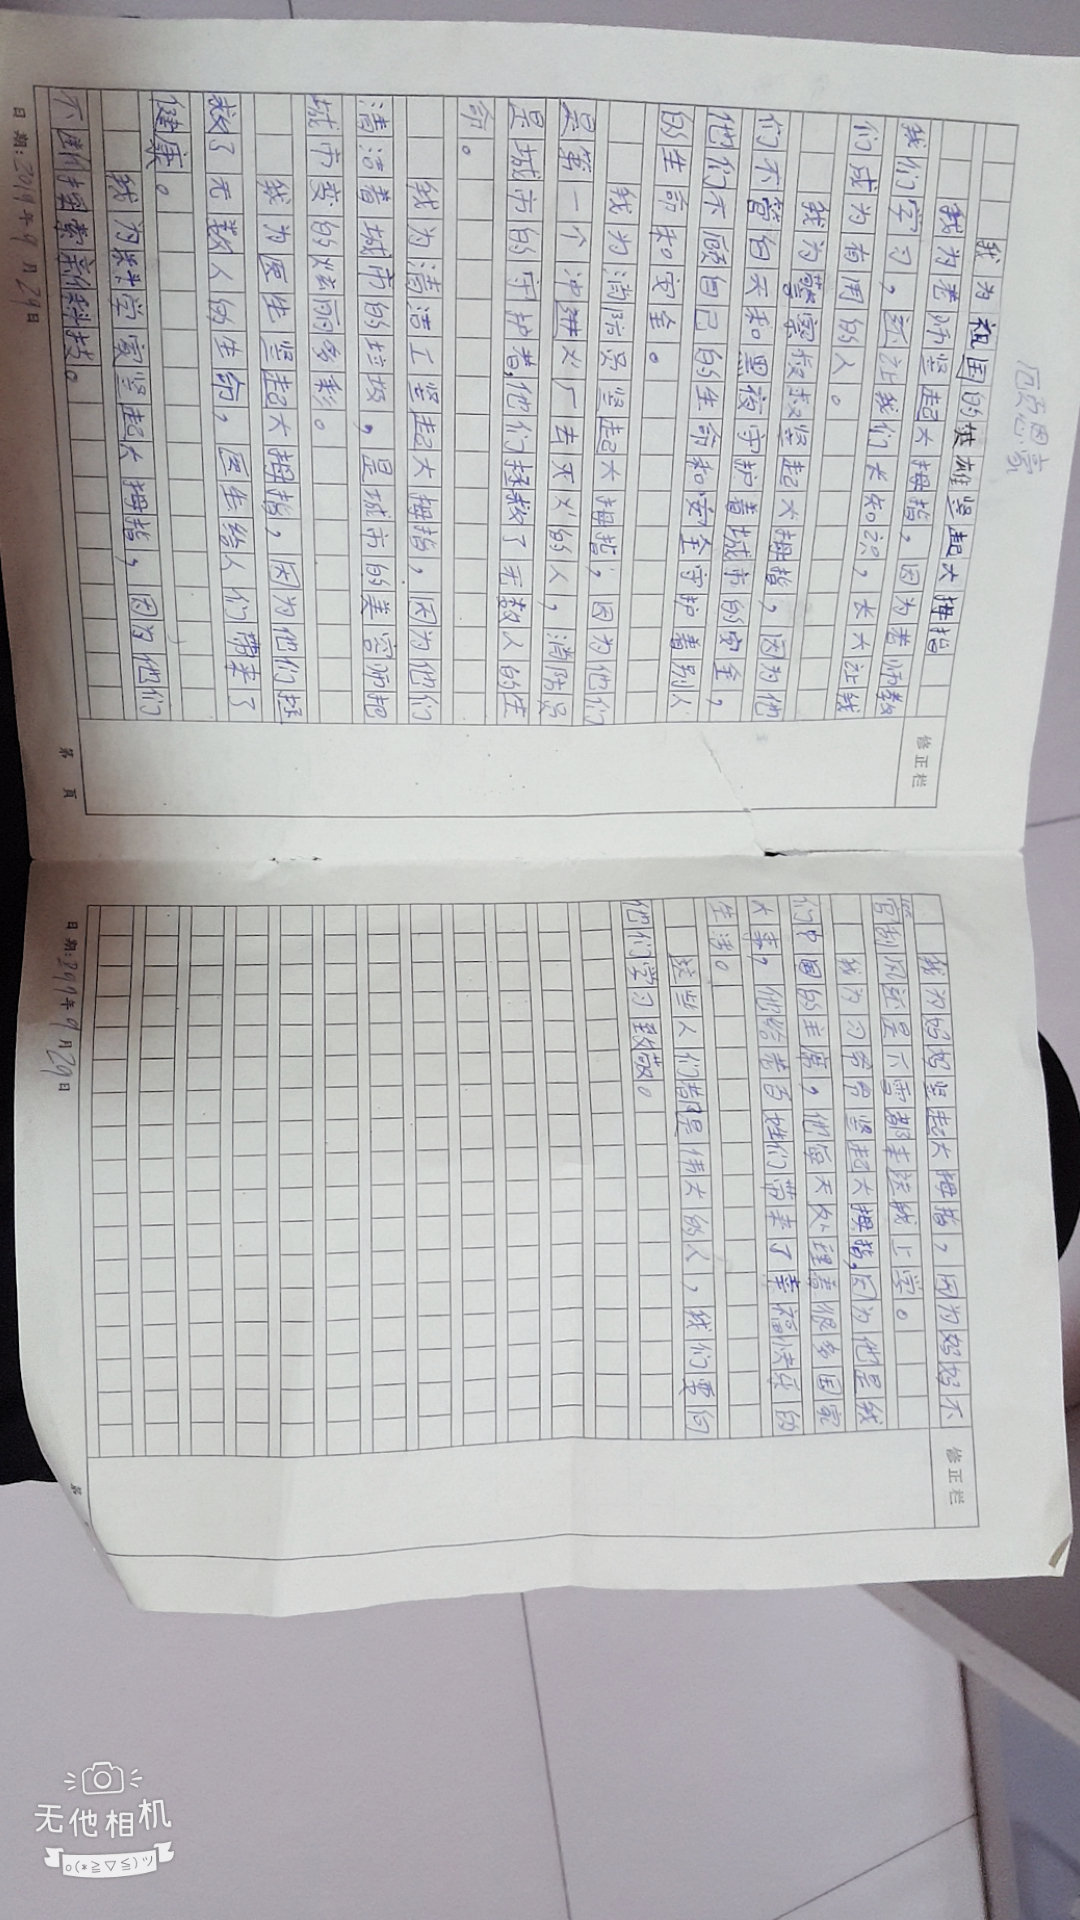 我为祖国的英雄竖起大拇指
我为老师竖起大拇指，因为老师教
我们学习，还让我们长知识，长大让我
们成为有用的人。
我为警察叔叔竖起大拇指，因为他
们不管白天和黑夜守护着城市的安全，
他们不顾自己的生命和安全守护着别人
的生命和安全。
我为消防员竖起大拇指，因为他们
是第一个冲进火厂去灭火的人，消防员
是城市的守护者，他们拯救了无数人的生
命。
我为清洁工竖起大拇指，因为他们
清洁着城市的垃圾，是城市的美容师把
城市变的美丽多彩。
我为医生竖起大拇指，因为他们拯
救了无数人的生命，医生给人们带来了
健康。
我为科学家竖起大拇指，因为他们
不断探索新科技。
日期：2019年9月29日
第 页
修正栏
我为妈妈竖起大拇指，因为妈妈不
管刮风还是下雪都来送我上学。
我为习爷爷竖起大拇指，因为他是我
们中国的主席，他每天处理着很多国家
大事，他给老百姓们带来了幸福快乐的
生活。
这些人们都是伟大的人，我们要向
他们学习致敬。
日期：2019年9月29日
第
修正栏
无他相机
o(*≧▽≦)ツ